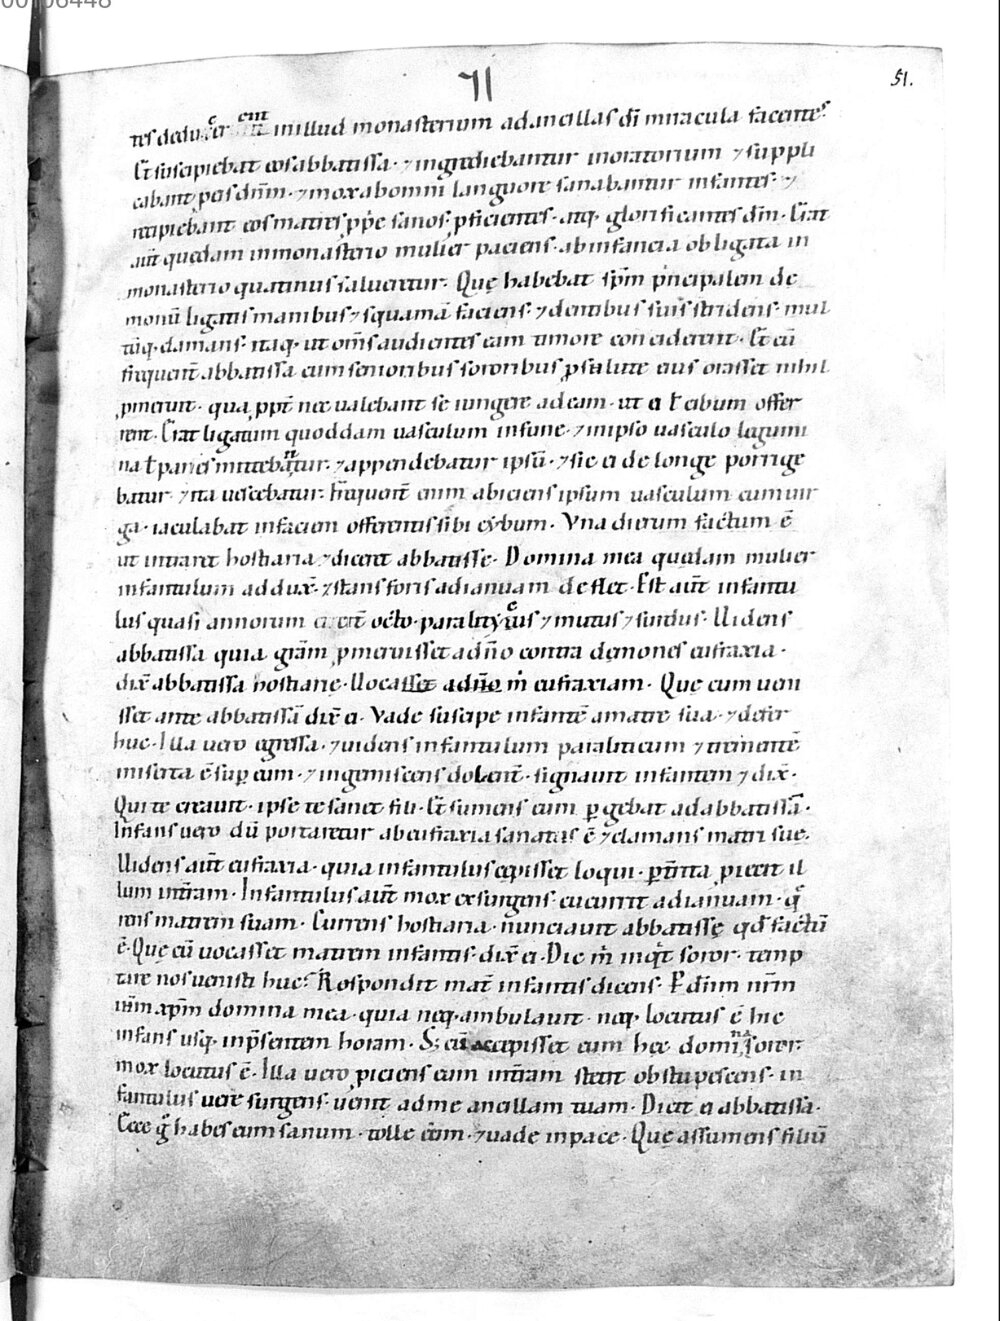 51.
illud monasterium ad ancillas dī miracula facientes
Et suscipiebat eos abbatissa · ⁊ ingrediebantur in oratorium ⁊ suppli
cabant dnm̄ · ⁊ mox ab omni languore sanabantur infantes · ⁊
recipiebant eos matres sanos · atq; glorificantes dm̄ · Erat
aūt quedam in monasterio mulier paciens · ab infancia obligata in
monasterio quatinus salueretur · Quę habebat spm̄ principalem de
monū ligatis manibus ⁊ squamā faciens · ⁊ dentibus suis stridens · mul
tūq; clamans · itaq; ut om̄s audientes eam timore conciderent · Et cū
frequent̄ abbatissa cum senioribus sororibus ꝓ salute eius orasset nihil
nec ualebant se iungere ad eam · ut ei ł cibum offer
rent · Erat ligatum quoddam uasculum in fune · ⁊ in ipso uasculo legumi
na ł panes mittebantur · ⁊ appendebatur ipsū · ⁊ sic ei de longe porrige
batur ⁊ ita uescebatur · Frequent̄ enim abiciens ipsum uasculum cum uir
ga · iaculabat in faciem offerentis sibi cybum · Vna dierum factum ē
ut intraret hostiaria ⁊ diceret abbatisse · Domina mea quedam mulier
infantulum addux̄ · ⁊ stans foris ad ianuam deflet · Est aūt infantu
lus quasi annorum octo · paralyticus ⁊ mutus ⁊ surdus · Uidens
abbatissa quia grām ꝓmeruisset a dn̄o contra dęmones eufraxia ·
dix̄ abbatissa hostiarię · Uocasset a dn̄o m̄ eufraxiam · Quę cum ueni
sset ante abbatissā dix̄ ei · Vade suscipe infantē a matre sua · ⁊ defer
huc · Illa uero egressa · ⁊ uidens infantulum paraliticum ⁊ trementē
miserta ē sup eum · ⁊ ingemiscens dolent̄ · signauit infantem ⁊ dix̄ ·
Qui te creauit · ipse te sanet fili · Et sumens eum ꝑgebat ad abbatissā ·
Infans uero dū portaretur ab eufraxia sanatus ē ⁊ clamans matri suę ·
Uidens aūt eufraxia · quia infantulus cępisset loqui · il
lum in trām · Infantulus aūt mox exsurgens cucurrit ad ianuam · q̄
rens matrem suam · Currens hostiaria · nunciauit abbatissę qd̄ factū
ē · Quę cū uocasset matrem infantis · dix̄ ei · Dic m̄ inqt̄ soror · temp
tare nos uenisti huc · Respondit mat̄ infantis dicens · P dn̄m nr̄m
ihm xpm̄ domina mea · quia neq; ambulauit · neq; locutus ē hic
infans usq; in p̄sentem horam · S; cū accepisset eum hęc domina soror ·
mox locutus ē · Illa uero piciens eum in trām stetit obstupescens · in
fantulus uere surgens · uenit ad me ancillam tuam · Dicit ei abbatissa ·
Ecce habes eum sanum · tolle eum · ⁊ uade in pace · Quę assumens filiū